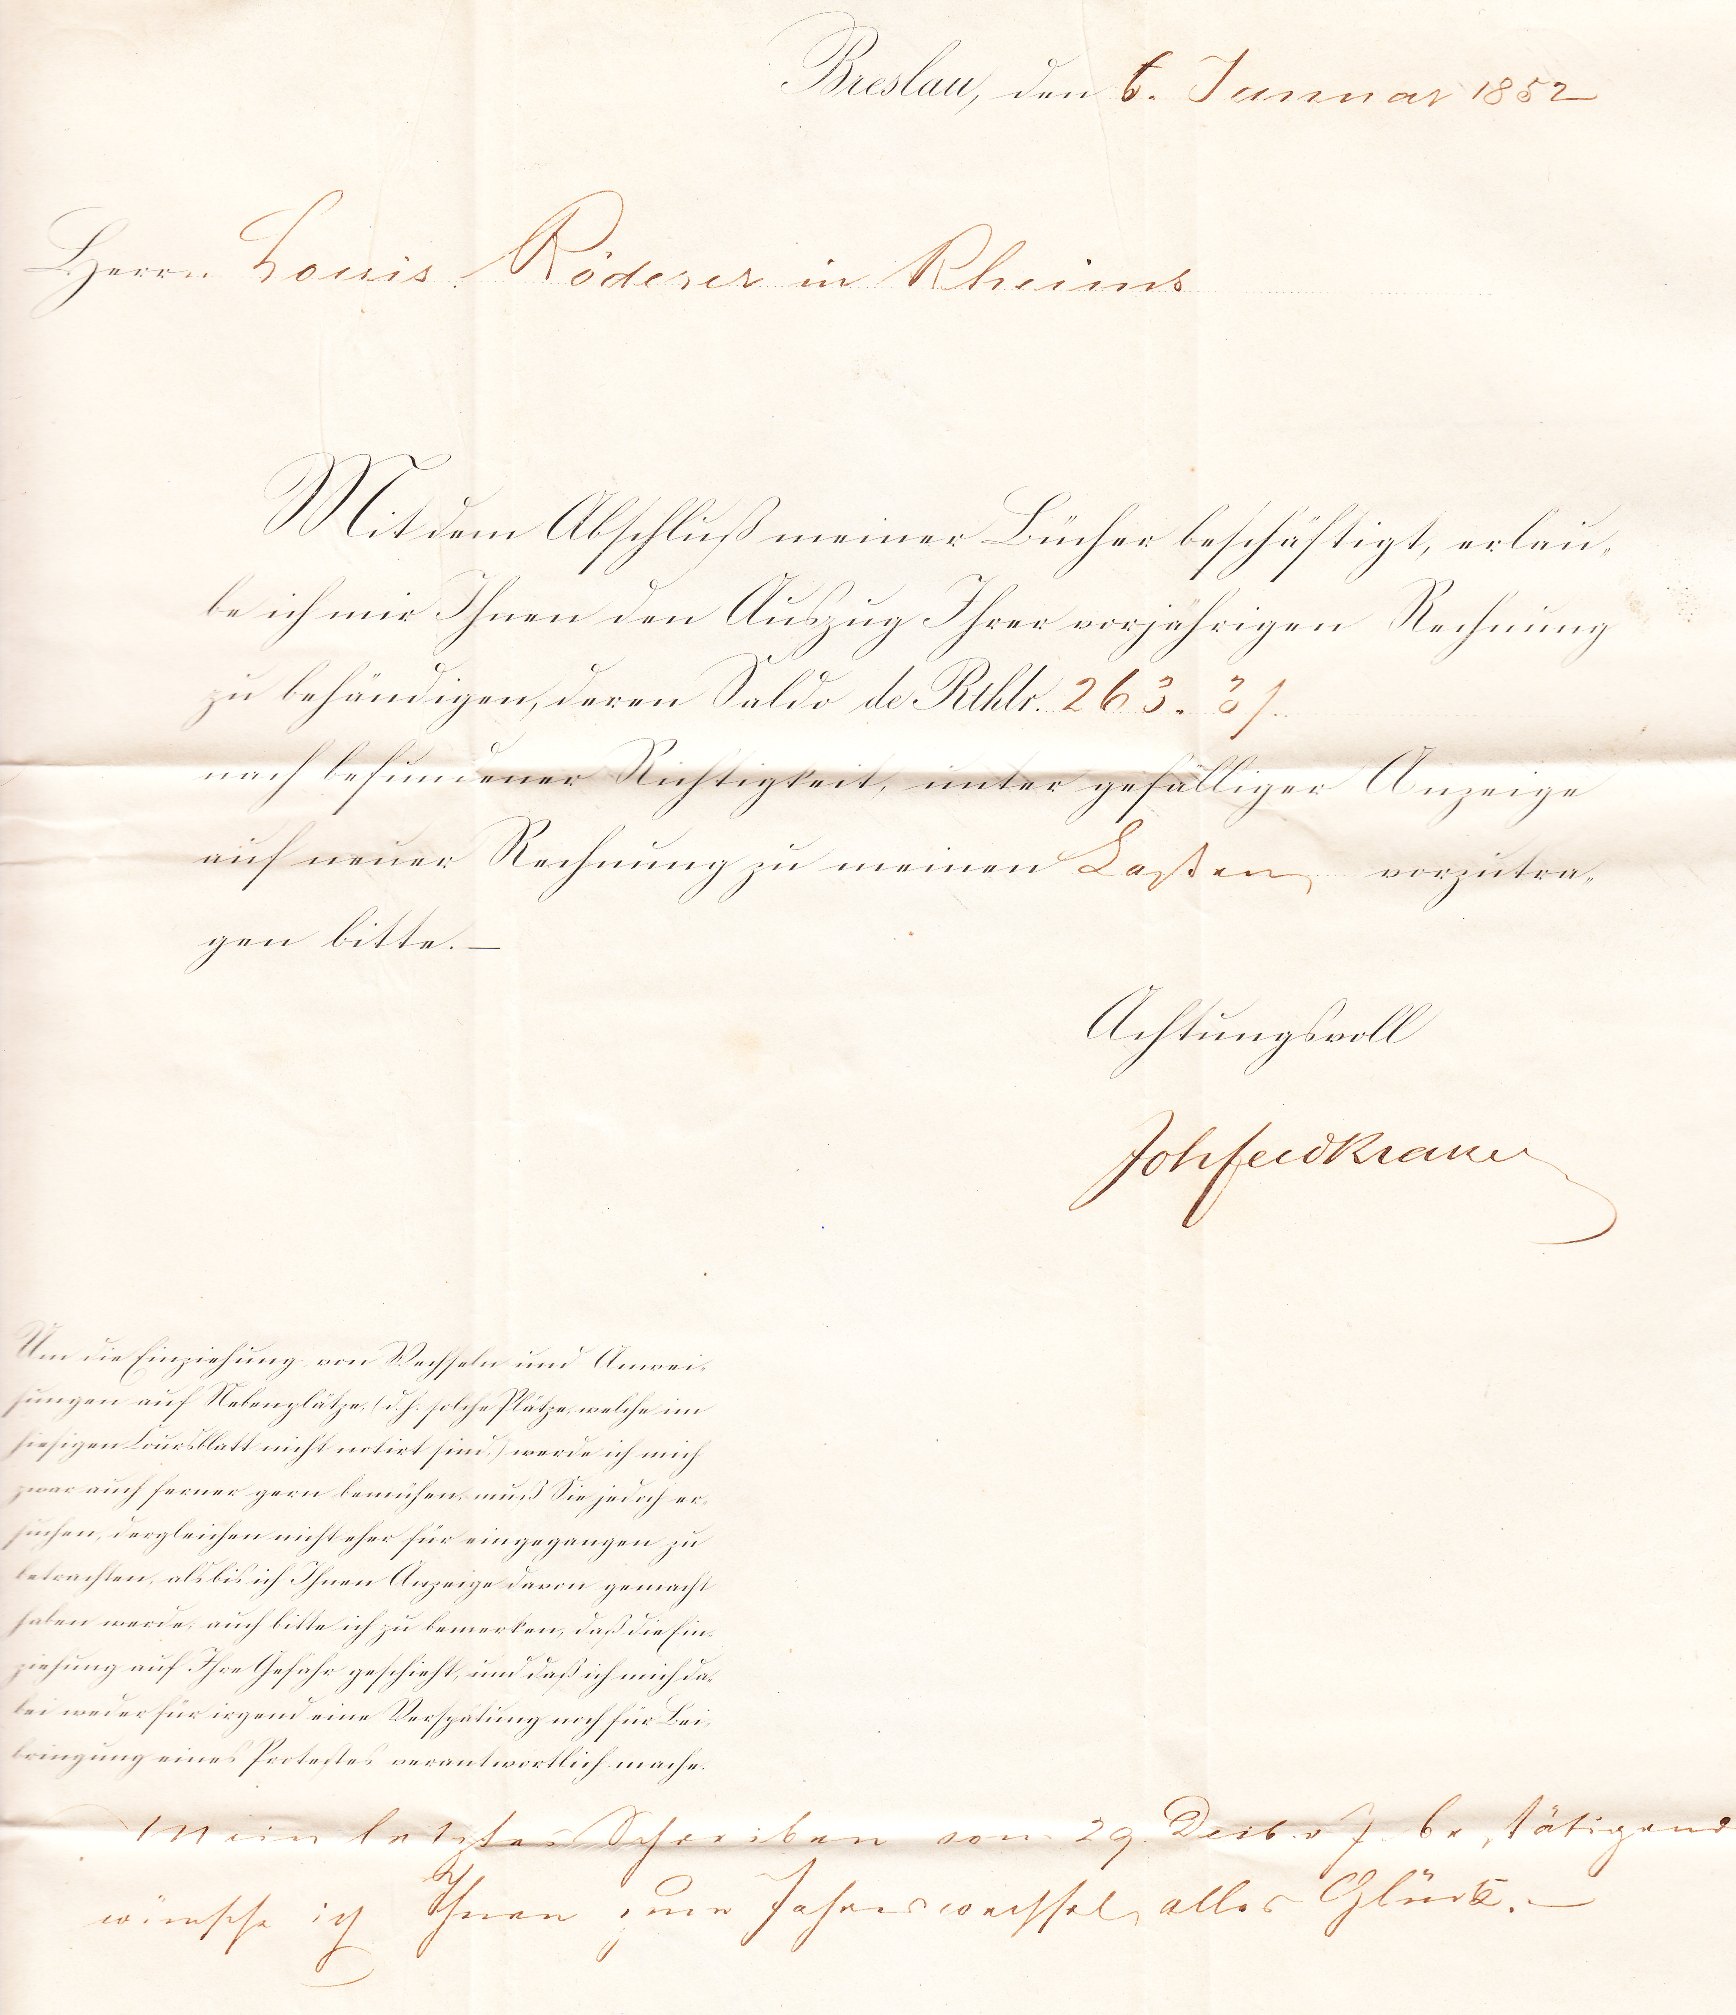 Breslau, den 6. Januar 1852
Herrn Louis Röderer in Rheims
Mit dem Abschluß meiner Bücher beschäftigt, erlau-
be ich mir Ihnen den Auszug Ihrer vorjährigen Rechnung
zu behändigen, deren Saldo de Rthlr. 263. 3/.
nach befundener Richtigkeit, unter gefälliger Anzeige
auf neuer Rechnung zu meinen Lasten vorzutra-
gen bitte. —
Achtungsvoll
Um die Einziehung von Wechseln und Anwei-
sungen auf Nebenplätze, (d.h. solche Plätze, welche im
hiesigen Coursblatt nicht notirt sind,) werde ich mich
zwar auch ferner gern bemühen, muß Sie jedoch er-
suchen, dergleichen nicht eher für eingegangen zu
betrachten, als bis ich Ihnen Anzeige davon gemacht
haben werde; auch bitte ich zu bemerken, daß die Ein-
ziehung auf Ihre Gefahr geschieht, und daß ich mich da-
bei weder für irgend eine Verspätung noch für Bei-
bringung eines Protestes verantwortlich mache.
Mein letztes Schreiben vom 29. Decb. v J. bestätigend
wünsche ich Ihnen zum Jahreswechsel alles Glück. —